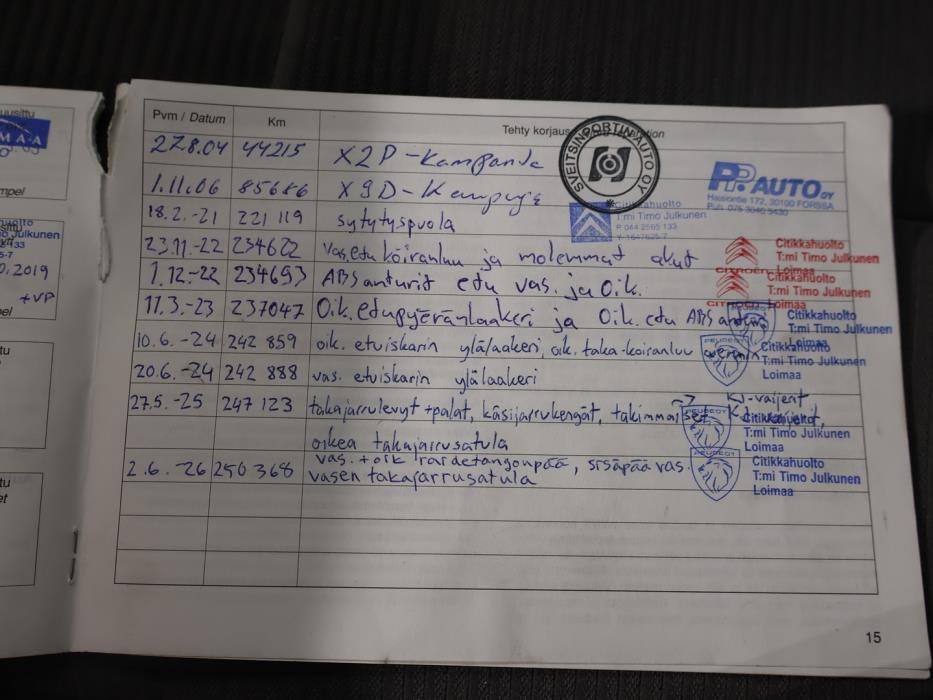 Pvm / Datum
Km
Tehty korjaus
SVEITSINPORTIN AUTO OY
27.8.04 44215 X2P-Kampanja
PP AUTO OY
Haisiontie 172, 30100 FORSSA
1.11.06 85686 X9D-Kampanja
18.2.-21 221 119 sytytyspuola
Citikkahuolto
T:mi Timo Julkunen
P. 044 2565 133
23.11-22 234622 Vas. etu koiranluu ja molemmat akut
Citikkahuolto
T:mi Timo Julkunen
Loimaa
CITROËN
1.12-22 234693 ABS anturit etu vas. ja oik.
Citikkahuolto
T:mi Timo Julkunen
Loimaa
CITROËN
11.3.-23 237047 Oik. etupyöränlaakeri ja Oik. etu ABS anturi
Citikkahuolto
T:mi Timo Julkunen
Loimaa
10.6.-24 242 859 oik. etuiskarin ylälaakeri, oik. taka-koiranluu
PEUGEOT
Citikkahuolto
T:mi Timo Julkunen
Loimaa
20.6.-24 242 888 vas. etuiskarin ylälaakeri
KJ-vaijerit
27.5.-25 247 123 takajarrulevyt + palat, käsijarrukengät, takimmaiset
oikea takajarrusatula
PEUGEOT
Citikkahuolto
T:mi Timo Julkunen
Loimaa
2.6.-26 250 368 vas. + oik raidetangonpää, sisäpää vas.
vasen takajarrusatula
PEUGEOT
Citikkahuolto
T:mi Timo Julkunen
Loimaa
15
usittu
M A-A
mpel
Julkunen
0.2019
+VP
pel
tu
et